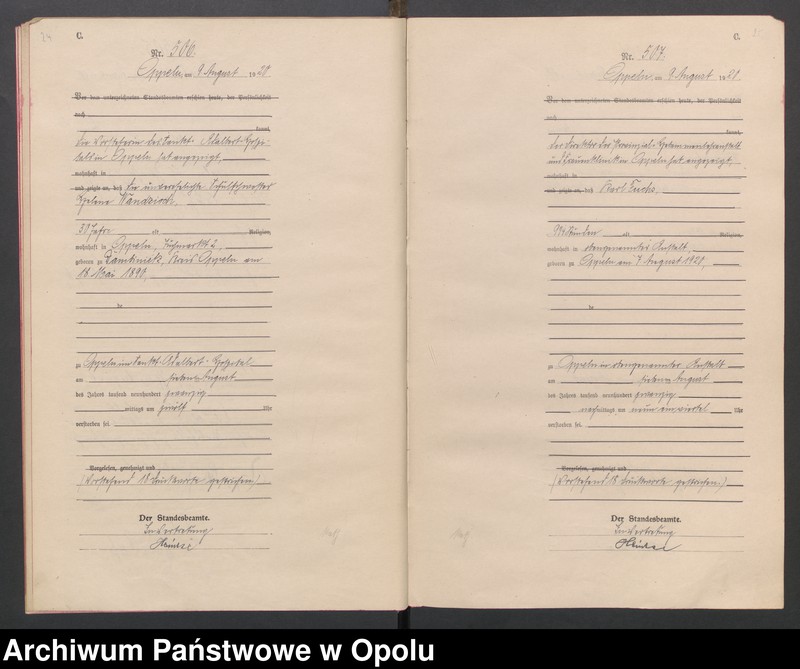 24
C.
Nr. 506.
Oppeln, am 9. August 1920
Vor dem unterzeichneten Standesbeamten erschien heute, der Persönlichkeit
nach
kannt,
die Vorsteherin des Sankt-Adalbert-Hospi-
tals in Oppeln hat angezeigt,
wohnhaft in
und zeigte an, daß die unverehelichte Schulschwester
Helene
30 Jahre alt Religion,
wohnhaft in Oppeln,
geboren zu Kreis Oppeln am
18. Mai 1890,
de
zu Oppeln im Sankt-Adalbert-Hospital
am siebenten August
des Jahres tausend neunhundert zwanzig
mittags um zwölf Uhr
verstorben sei.
Vorgelesen, genehmigt und
(Vorstehend 18 Druckworte gestrichen)
Der Standesbeamte.
In Vertretung
C.
Nr. 507.
Oppeln, am 9. August 1920
Vor dem unterzeichneten Standesbeamten erschien heute, der Persönlichkeit
nach
kannt,
der Direktor der Provinzial-Hebammenlehranstalt
und Frauenklinik in Oppeln hat angezeigt,
wohnhaft in
und zeigte an, daß Karl Fuchs,
Stunden alt Religion,
wohnhaft in obengenannter Anstalt,
geboren zu Oppeln am 7. August 1920,
de
zu Oppeln in obengenannter Anstalt
am siebenten August
des Jahres tausend neunhundert zwanzig
nachmittags um neun einviertel Uhr
verstorben sei.
Vorgelesen, genehmigt und
(Vorstehend 18 Druckworte gestrichen)
Der Standesbeamte.
In Vertretung
Archiwum Państwowe w Opolu